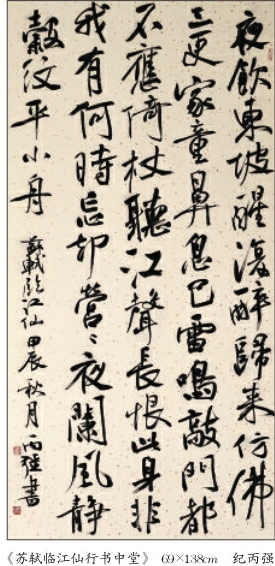 夜飲東坡醒復醉歸来仿佛
三更家童鼻息已雷鳴敲門都
不應倚杖聽江聲長恨此身非
我有何時忘却營〻夜闌風静
縠紋平小舟 蘇軾臨江仙甲辰秋月丙强書
《苏轼临江仙行书中堂》 69×138cm 纪丙强